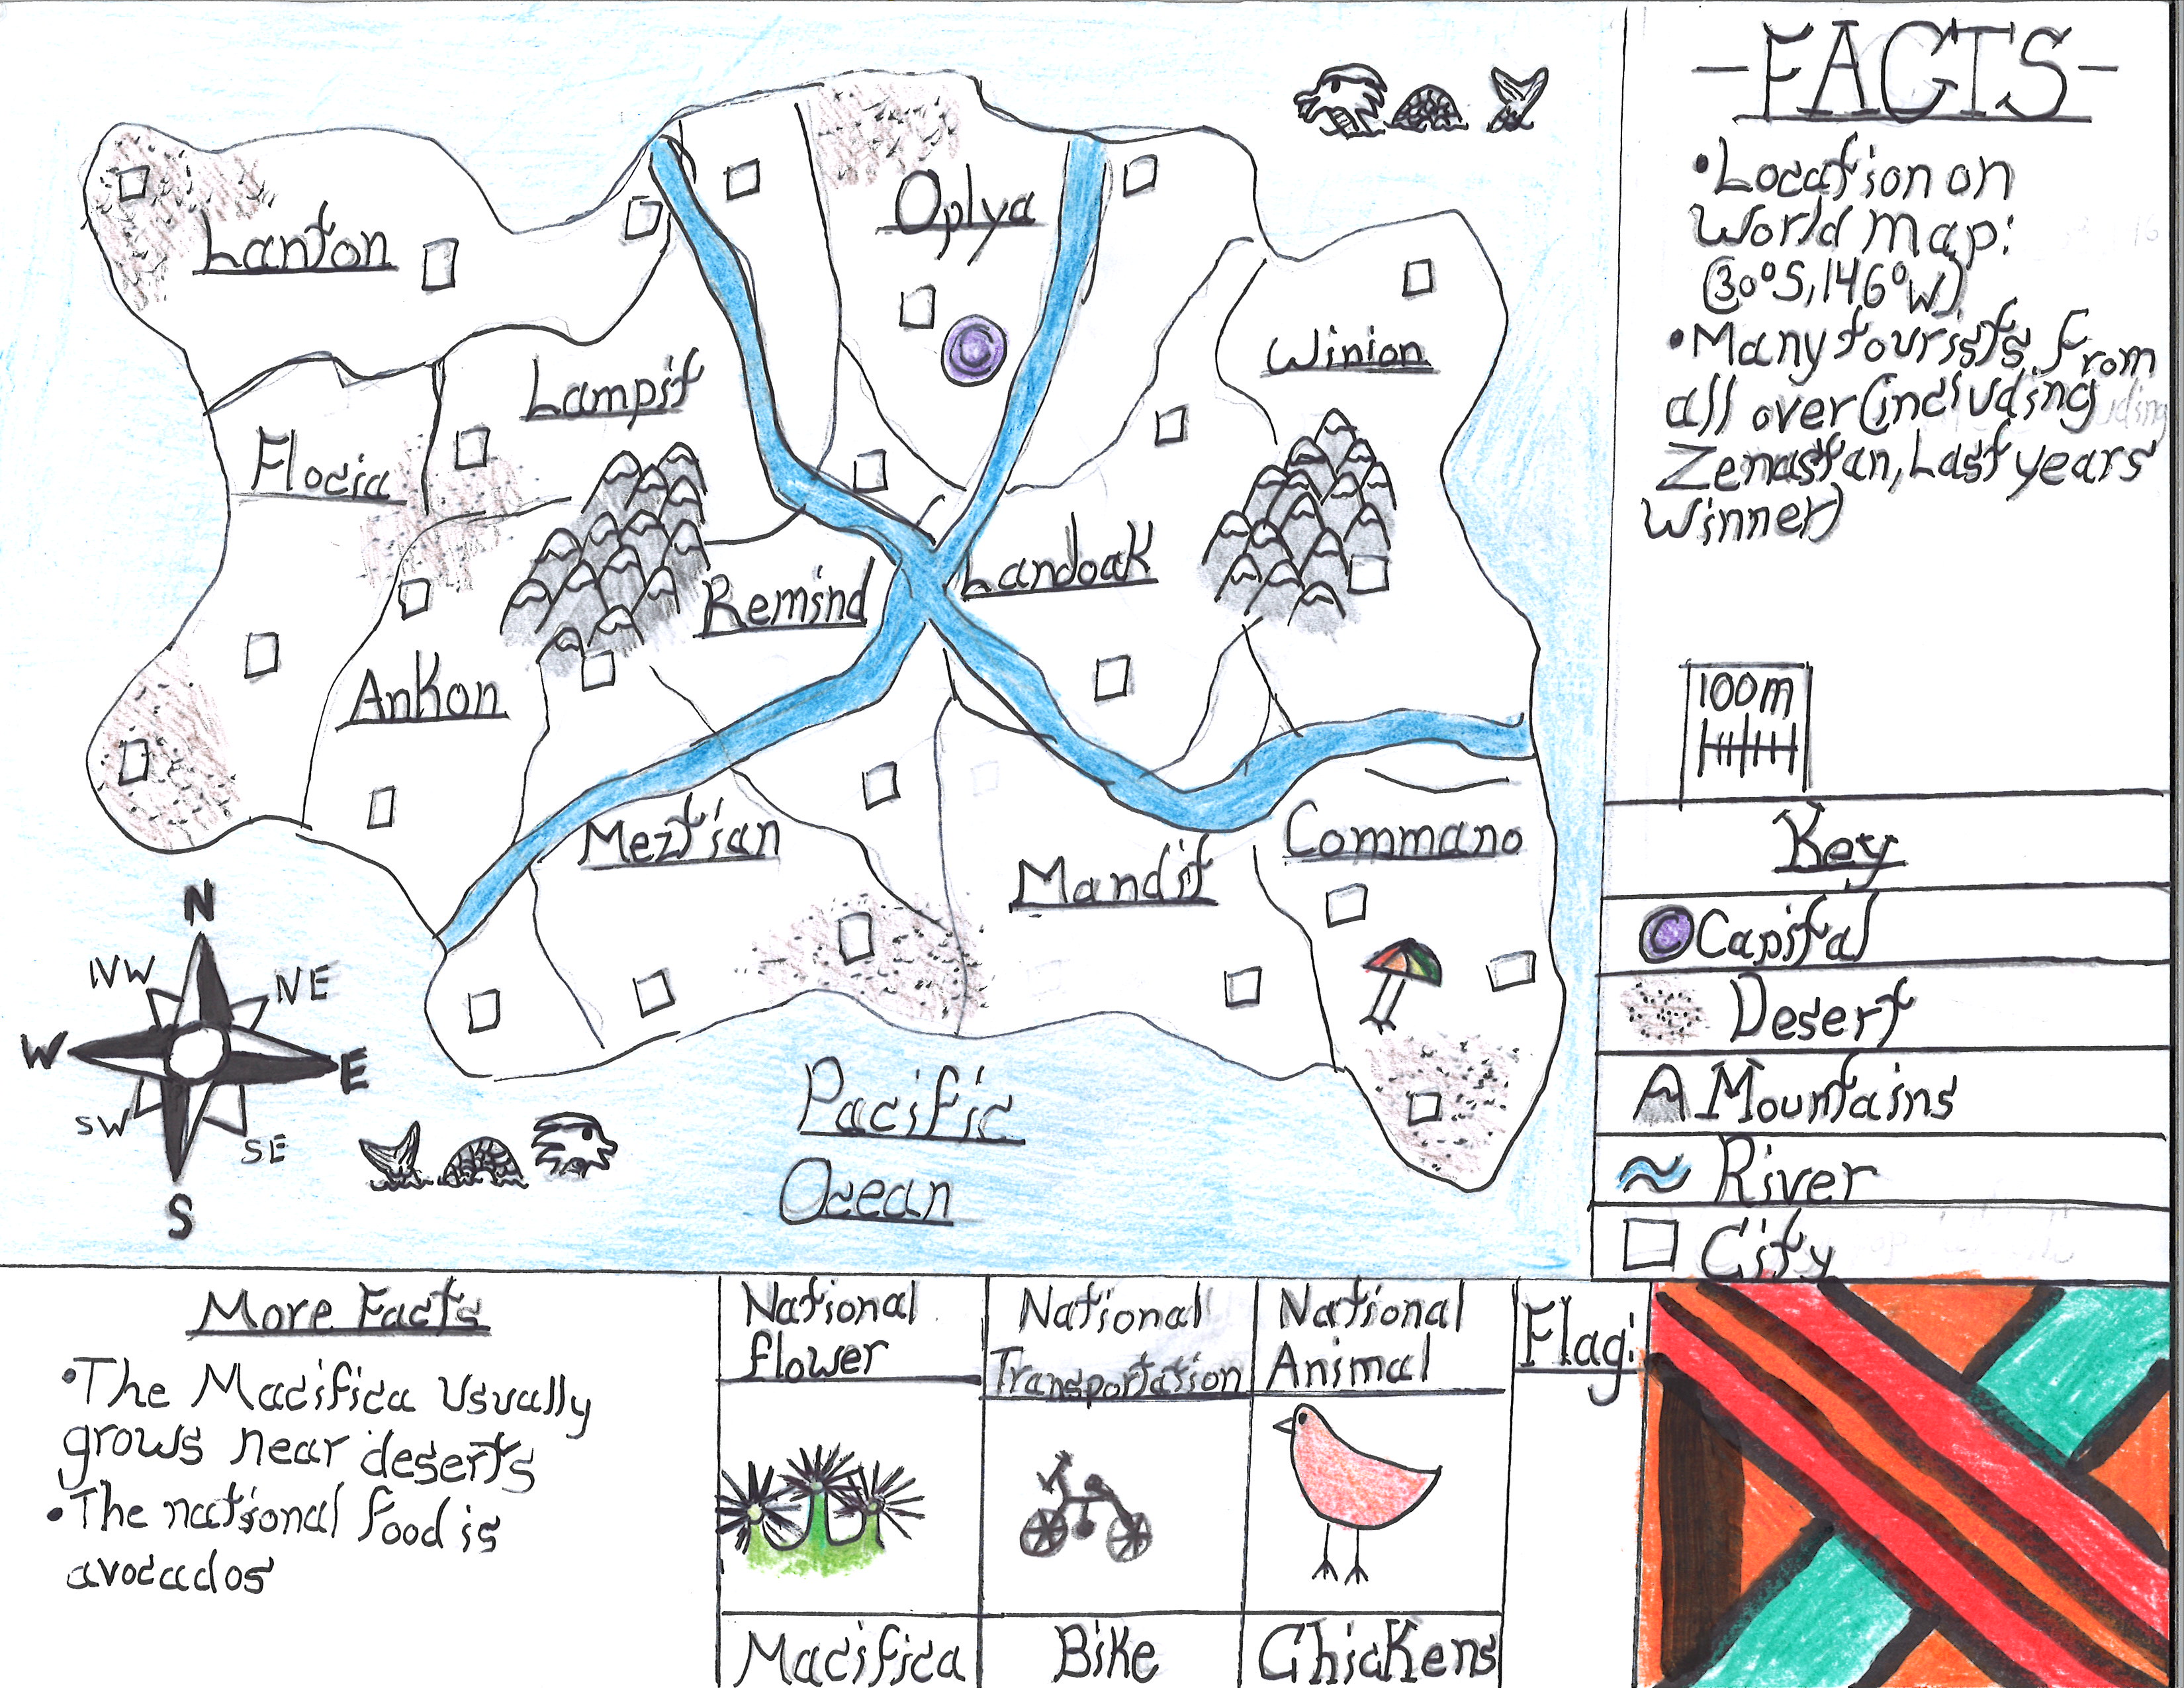 -FACTS-
•Location on
World map:
(30°S,146°W)
•Many tourists from
all over (including
Zenastan, Last years
Winner)
100m
Key
C Capital
Desert
Mountains
River
City
Lanton
Oplya
C
Winion
Lampit
Flocia
Landoak
Remind
Ankon
Meztian
Commano
Mandit
N
NW
NE
W
E
SW
SE
S
Pacific
Ocean
More Facts
•The Macifica Usually
grows near deserts
•The national food is
avocados
National
flower
Macifica
National
Transportation
Bike
National
Animal
Chickens
Flag: